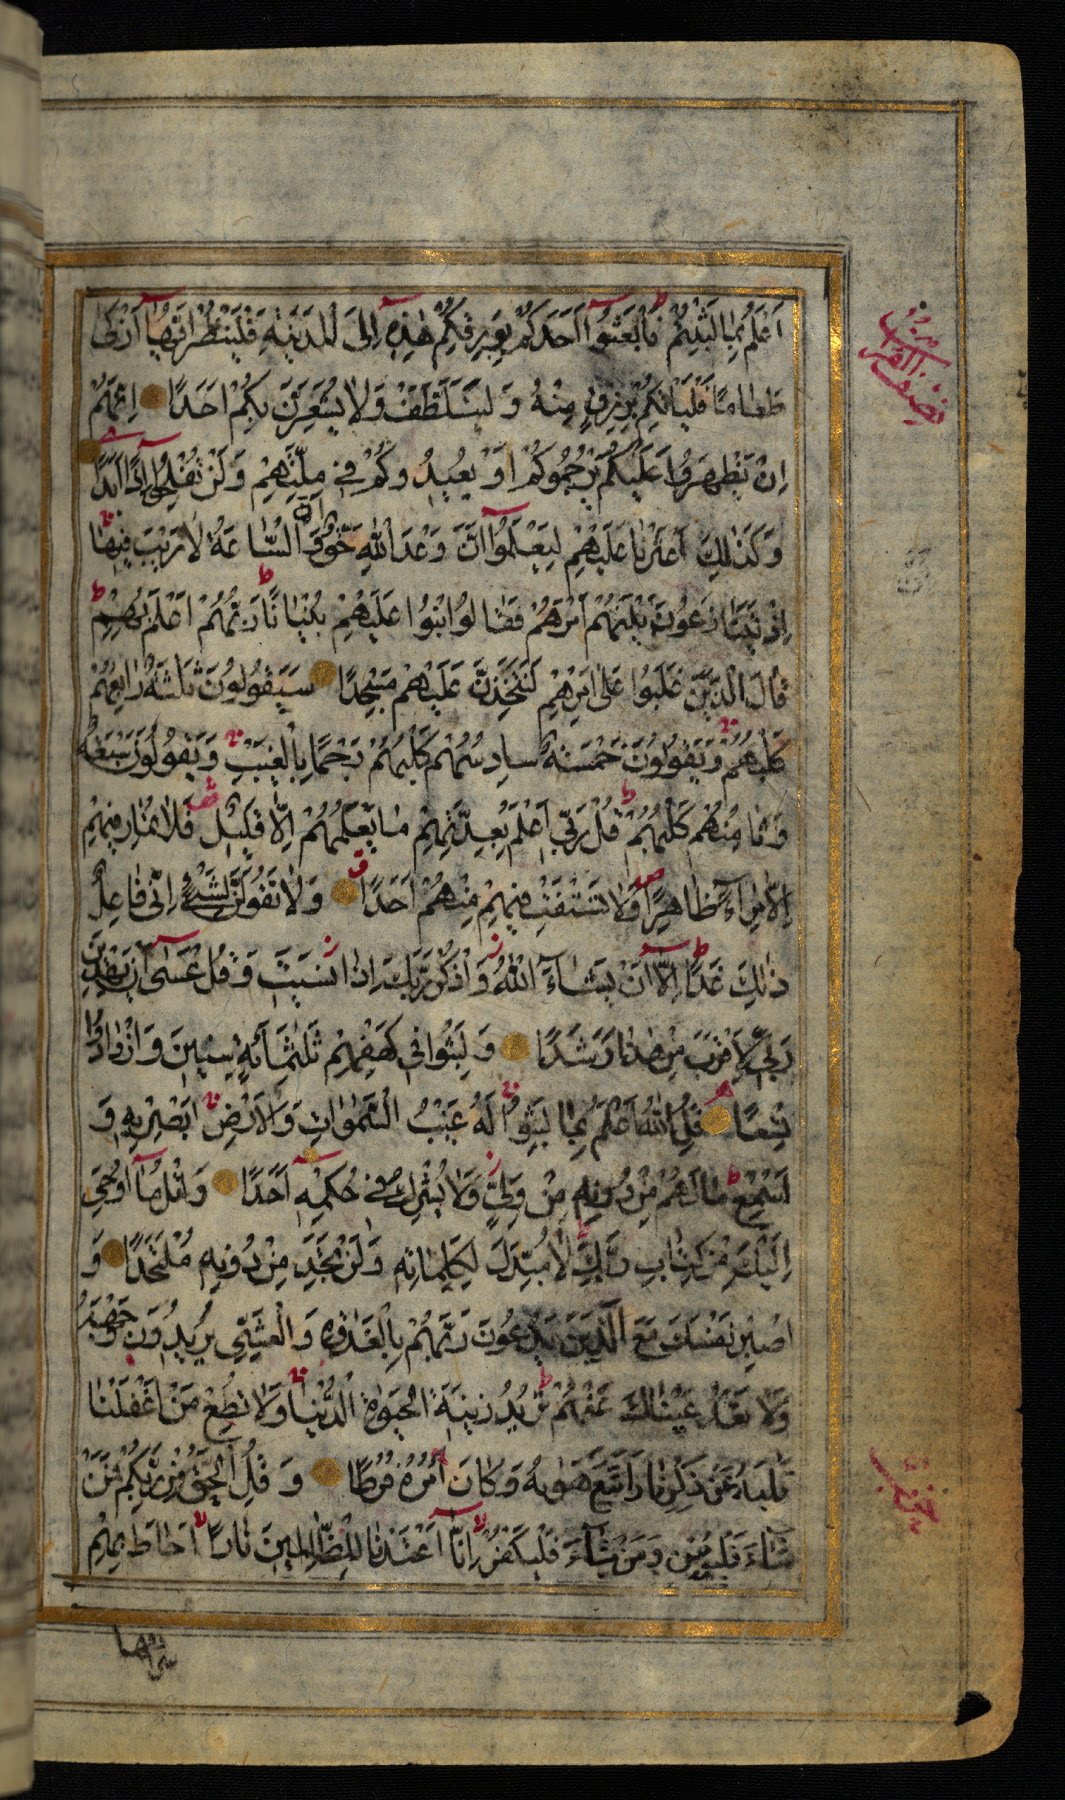 اَعْلَمُ بِمَا لَبِثْتُمْ فَابْعَثُوا اَحَدَكُمْ بِوَرِقِكُمْ هٰذِهٖ اِلَى الْمَدٖينَةِ فَلْيَنْظُرْ اَيُّهَا اَزْكٰى
طَعَامًا فَلْيَاْتِكُمْ بِرِزْقٍ مِنْهُ وَلْيَتَلَطَّفْ وَلَا يُشْعِرَنَّ بِكُمْ اَحَدًا اِنَّهُمْ
اِنْ يَظْهَرُوا عَلَيْكُمْ يَرْجُمُوكُمْ اَوْ يُعٖيدُوكُمْ فٖى مِلَّتِهِمْ وَلَنْ تُفْلِحُوا اِذًا اَبَدًا
وَكَذٰلِكَ اَعْثَرْنَا عَلَيْهِمْ لِيَعْلَمُوا اَنَّ وَعْدَ اللّٰهِ حَقٌّ وَاَنَّ السَّاعَةَ لَا رَيْبَ فٖيهَا
اِذْ يَتَنَازَعُونَ بَيْنَهُمْ اَمْرَهُمْ فَقَالُوا ابْنُوا عَلَيْهِمْ بُنْيَانًا رَبُّهُمْ اَعْلَمُ بِهِمْ
قَالَ الَّذٖينَ غَلَبُوا عَلٰى اَمْرِهِمْ لَنَتَّخِذَنَّ عَلَيْهِمْ مَسْجِدًا سَيَقُولُونَ ثَلٰثَةٌ رَابِعُهُمْ
كَلْبُهُمْ وَيَقُولُونَ خَمْسَةٌ سَادِسُهُمْ كَلْبُهُمْ رَجْمًا بِالْغَيْبِ وَيَقُولُونَ سَبْعَةٌ
وَثَامِنُهُمْ كَلْبُهُمْ قُلْ رَبّٖى اَعْلَمُ بِعِدَّتِهِمْ مَا يَعْلَمُهُمْ اِلَّا قَلٖيلٌ فَلَا تُمَارِ فٖيهِمْ
اِلَّا مِرَآءً ظَاهِرًا وَلَا تَسْتَفْتِ فٖيهِمْ مِنْهُمْ اَحَدًا وَلَا تَقُولَنَّ لِشَىْءٍ اِنّٖى فَاعِلٌ
ذٰلِكَ غَدًا اِلَّا اَنْ يَشَآءَ اللّٰهُ وَاذْكُرْ رَبَّكَ اِذَا نَسٖيتَ وَقُلْ عَسٰى اَنْ يَهْدِيَنِ
رَبّٖى لِاَقْرَبَ مِنْ هٰذَا رَشَدًا وَلَبِثُوا فٖى كَهْفِهِمْ ثَلٰثَمِائَةٍ سِنٖينَ وَازْدَادُوا
تِسْعًا قُلِ اللّٰهُ اَعْلَمُ بِمَا لَبِثُوا لَهُ غَيْبُ السَّمٰوَاتِ وَالْاَرْضِ اَبْصِرْ بِهٖ وَ
اَسْمِعْ مَا لَهُمْ مِنْ دُونِهٖ مِنْ وَلِىٍّ وَلَا يُشْرِكُ فٖى حُكْمِهٖ اَحَدًا وَاتْلُ مَا اُوحِىَ
اِلَيْكَ مِنْ كِتَابِ رَبِّكَ لَا مُبَدِّلَ لِكَلِمَاتِهٖ وَلَنْ تَجِدَ مِنْ دُونِهٖ مُلْتَحَدًا وَ
اصْبِرْ نَفْسَكَ مَعَ الَّذٖينَ يَدْعُونَ رَبَّهُمْ بِالْغَدٰوةِ وَالْعَشِىِّ يُرٖيدُونَ وَجْهَهُ
وَلَا تَعْدُ عَيْنَاكَ عَنْهُمْ تُرٖيدُ زٖينَةَ الْحَيٰوةِ الدُّنْيَا وَلَا تُطِعْ مَنْ اَغْفَلْنَا
قَلْبَهُ عَنْ ذِكْرِنَا وَاتَّبَعَ هَوٰيهُ وَكَانَ اَمْرُهُ فُرُطًا وَقُلِ الْحَقُّ مِنْ رَبِّكُمْ فَمَنْ
شَآءَ فَلْيُؤْمِنْ وَمَنْ شَآءَ فَلْيَكْفُرْ اِنَّا اَعْتَدْنَا لِلظَّالِمٖينَ نَارًا اَحَاطَ بِهِمْ
سرادقها